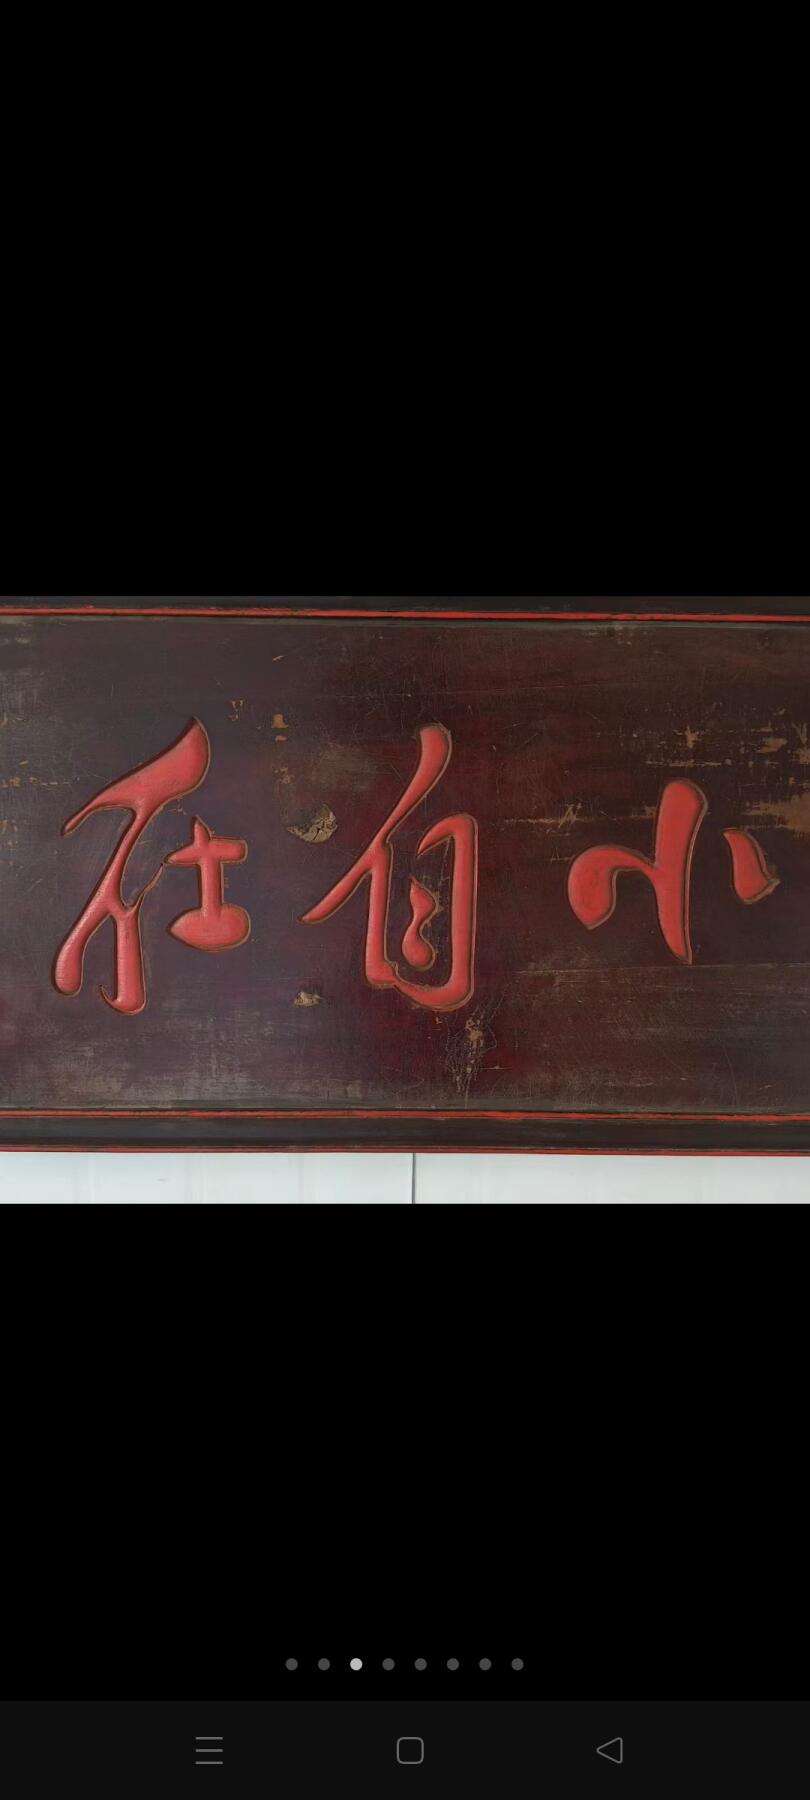 小自在